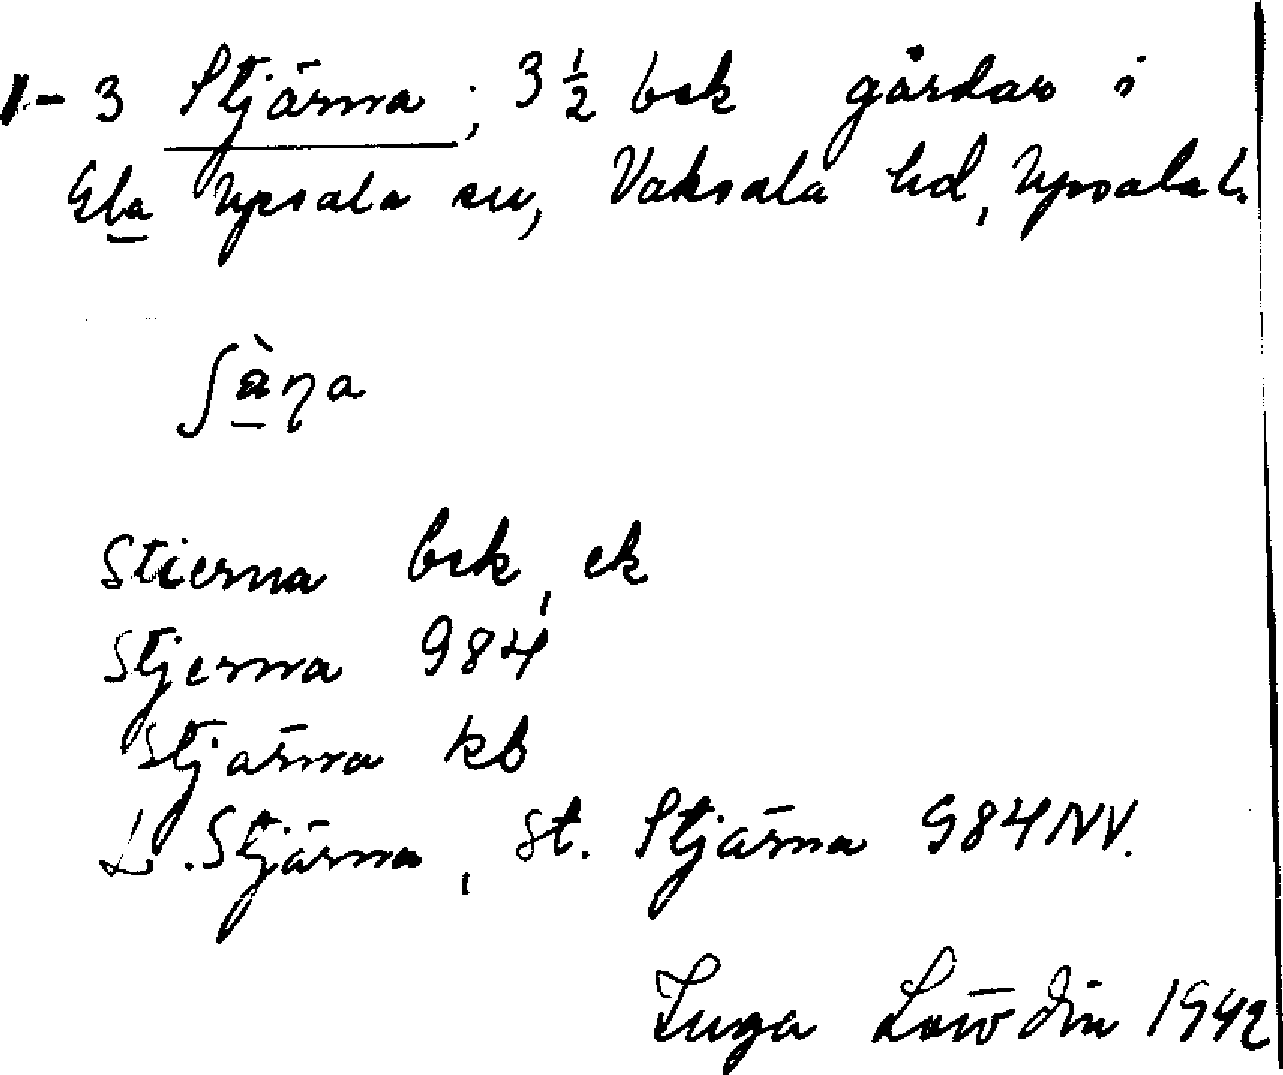 1-3 Stjärna; 3 ½ bsk gårdar i
Gla Upsala sn, Vaksala hd, Upsala l.
ʃὰɳa
Stierna bsk, ek
Stjerna 984
Stjärna kb
L. Stjärna, St. Stjärna 984 NV.
Inga Löwdin 1942